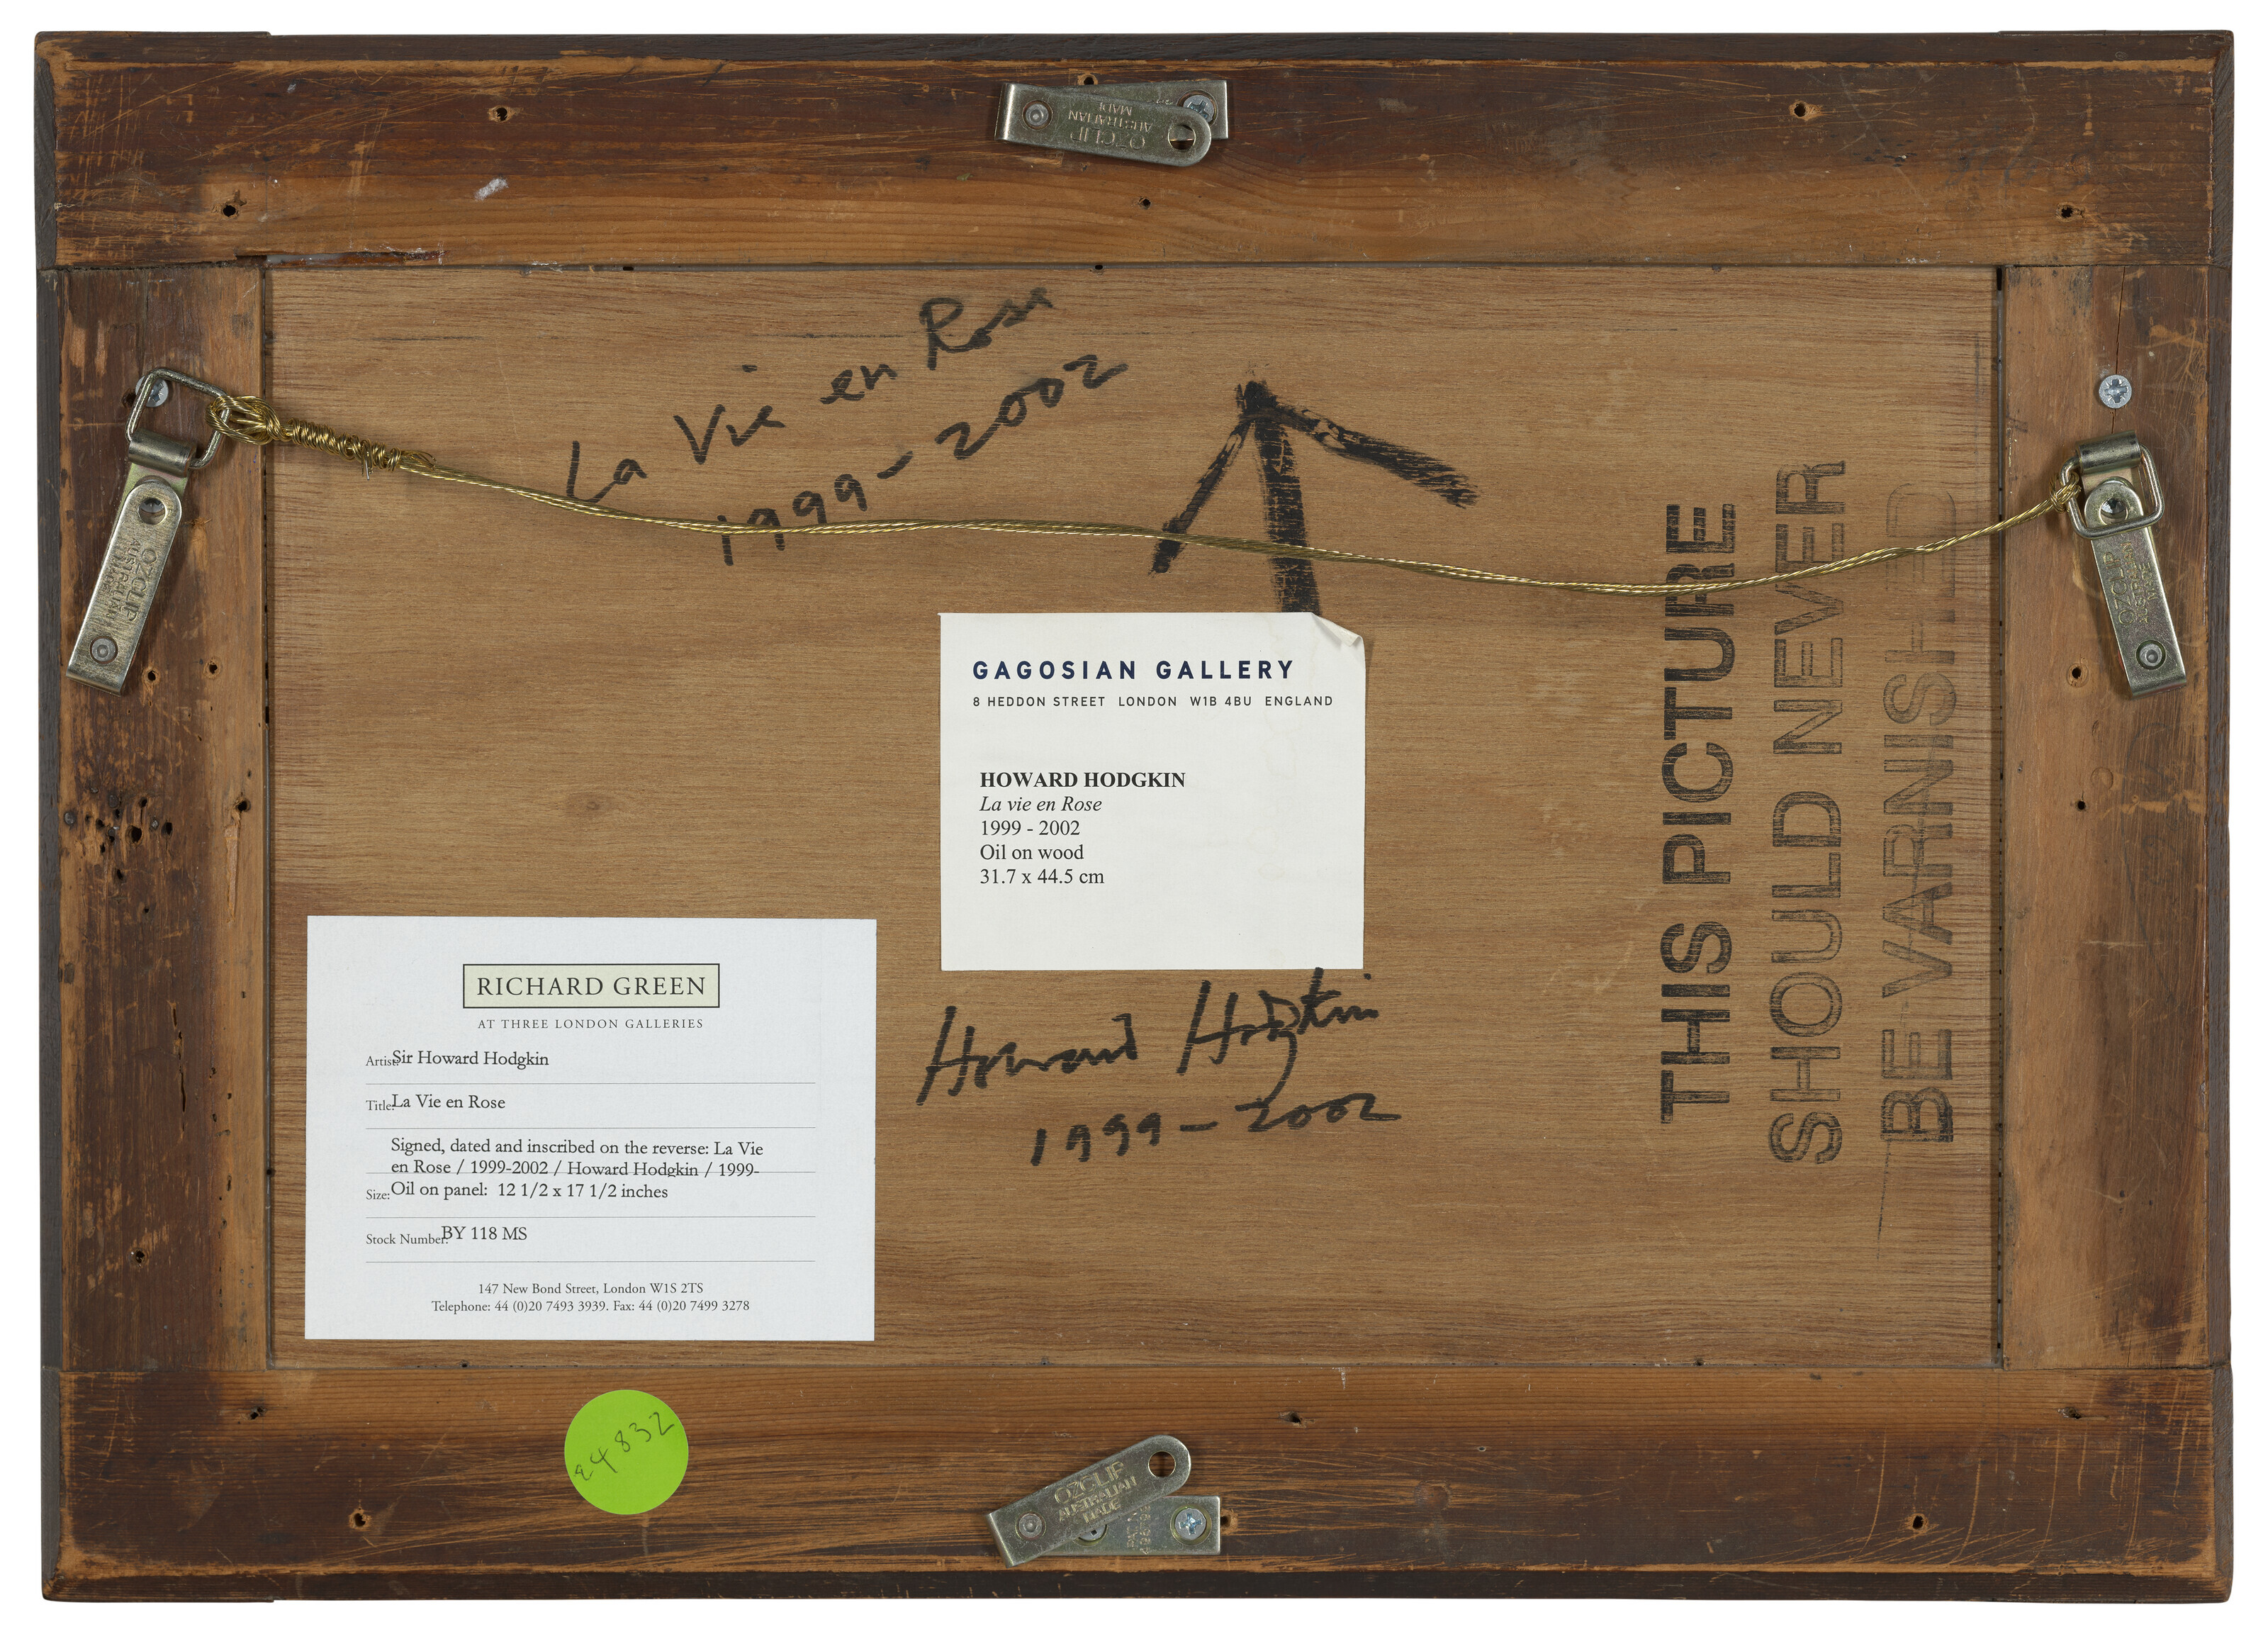 OZCLIP
AUSTRALIAN
MADE
La Vie en Rose
1999-2002
OZCLIP
AUSTRALIAN
MADE
OZCLIP
GAGOSIAN GALLERY
8 HEDDON STREET LONDON W1B 4BU ENGLAND
HOWARD HODGKIN
La vie en Rose
1999 - 2002
Oil on wood
31.7 x 44.5 cm
THIS PICTURE
SHOULD NEVER
BE VARNISHED
RICHARD GREEN
AT THREE LONDON GALLERIES
Artist: Sir Howard Hodgkin
Title: La Vie en Rose
Signed, dated and inscribed on the reverse: La Vie
en Rose / 1999-2002 / Howard Hodgkin / 1999-
Size: Oil on panel: 12 1/2 x 17 1/2 inches
Stock Number: BY 118 MS
147 New Bond Street, London W1S 2TS
Telephone: 44 (0)20 7493 3939. Fax: 44 (0)20 7499 3278
Howard Hodgkin
1999-2002
24832
OZCLIP
AUSTRALIAN
MADE